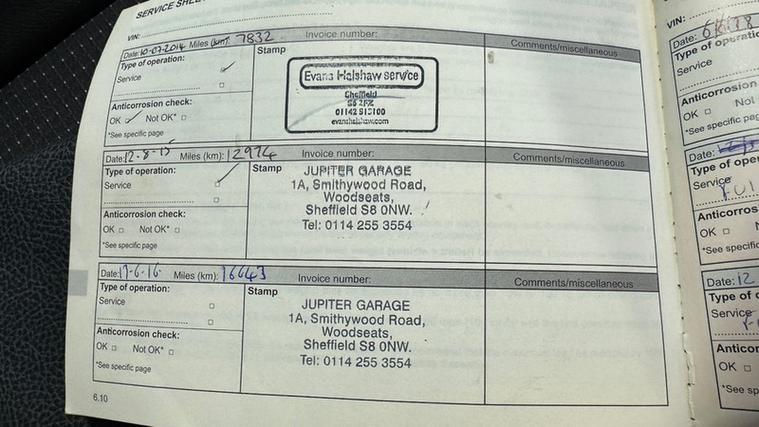 SERVICE SHEE
VIN:
Date: 10-07-2014 Miles (km): 7832 Invoice number:
Comments/miscellaneous
Type of operation:
Service
Stamp
Evans Halshaw service
Sheffield
evanshalshaw.com
Anticorrosion check:
OK Not OK*
*See specific page
Date: 12-8-15 Miles (km): 12974 Invoice number:
Comments/miscellaneous
Type of operation:
Service
Stamp
JUPITER GARAGE
1A, Smithywood Road,
Woodseats,
Sheffield S8 0NW.
Tel: 0114 255 3554
Anticorrosion check:
OK Not OK*
*See specific page
Date: 17-6-16 Miles (km): 16643 Invoice number:
Comments/miscellaneous
Type of operation:
Service
Stamp
JUPITER GARAGE
1A, Smithywood Road,
Woodseats,
Sheffield S8 0NW.
Tel: 0114 255 3554
Anticorrosion check:
OK Not OK*
*See specific page
6.10
VIN:
Date:
Type of operatio
Service
Anticorrosion
OK Not
*See specific pa
Date:
Type of oper
Service
Anticorros
OK
*See specific
Date: 12
Type of o
Service
Anticor
OK
*See sp